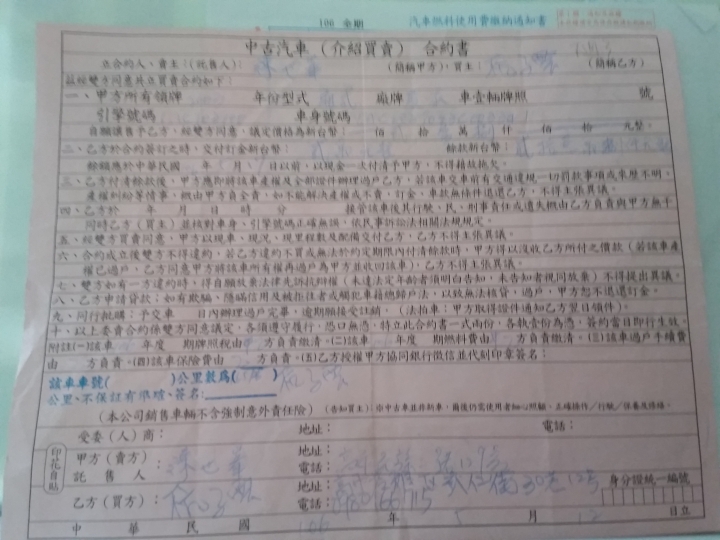 106 全期 汽車燃料使用費繳納通知書
中古汽車（介紹買賣）合約書
立合約人、賣主：(託售人) (簡稱甲方)，買主 (簡稱乙方)
茲經雙方同意共立買賣合約如下：
一、甲方所有領牌 年份型式 廠牌 車壹輛牌照 號
引擎號碼 車身號碼
自願讓售予乙方，經雙方同意，議定價格為新台幣： 佰 拾 萬 仟 佰 拾 元整。
二、乙方於合約簽訂之時，交付訂金新台幣： 餘款新台幣：
餘額應於中華民國 年 月 日以前，以現金一次付清予甲方，不得藉故拖欠。
三、乙方付清餘款後，甲方應即將該車產權及全部證件辦理過戶乙方，若該車交車前有交通違規一切罰款事項或來歷不明、
產權糾紛等情事，概由甲方負全責，如不能解決產權或不賣，訂金、車款無條件退還乙方，不得主張異議。
四、乙方於 年 月 日 時 分 接管該車後其行駛、民、刑事責任或遺失概由乙方負責與甲方無干
同時乙方（買主）並核對車身、引擎號碼正確無誤，依民事訴訟法相關法規規定。
五、經雙方買賣同意，甲方以現車、現況、現里程數及配備交付乙方，乙方不得主張異議。
六、合約成立後雙方不得違約，若乙方違約不買或無法於約定期限內付清餘款時，甲方得以沒收乙方所付之價款（若該車產
權已過戶，乙方同意甲方將該車所有權再過戶為甲方並收回該車），乙方不得主張異議。
七、雙方如有一方違約時，得自願放棄法律先訴抗辯權（未達法定年齡者須明白告知，未告知者視同放棄）不得提出異議。
八、乙方申請貸款：如有欺騙、隱瞞信用及被拒往者或觸犯車籍總歸戶法，以致無法核貸、過戶，甲方恕不退還訂金。
九、同行批購：予交車 日內辦理過戶完畢，逾期願接受註銷。（法拍車：甲方取得證件通知乙方翌日領件）。
十、以上委賣合約係雙方同意議定，各須遵守履行，恐口無憑，特立此合約書一式兩份，各執壹份為憑，簽約當日即行生效。
附註(一)該車 年度 期牌照稅由 方負責繳清。(二)該車 年度 期燃料費由 方負責繳清。(三)該車過戶手續費
由 方負責。(四)該車保險費由 方負責。(五)乙方授權甲方協同銀行徵信並代刻印章簽名：
該車車號( )公里數為( )
公里，不保証有無壞，簽名：
（本公司銷售車輛不含強制意外責任險） (告知買主)：中古車並非新車，備後仍需使用者細心照顧、正確操作／行駛／保養及修繕。
受委（人）商： 地址： 電話：
印花自貼
甲方（賣方）： 地址：
託售人 電話：
乙方（買方）： 地址： 身分證統一編號
電話：
中華民國 106 年 月 12 日立